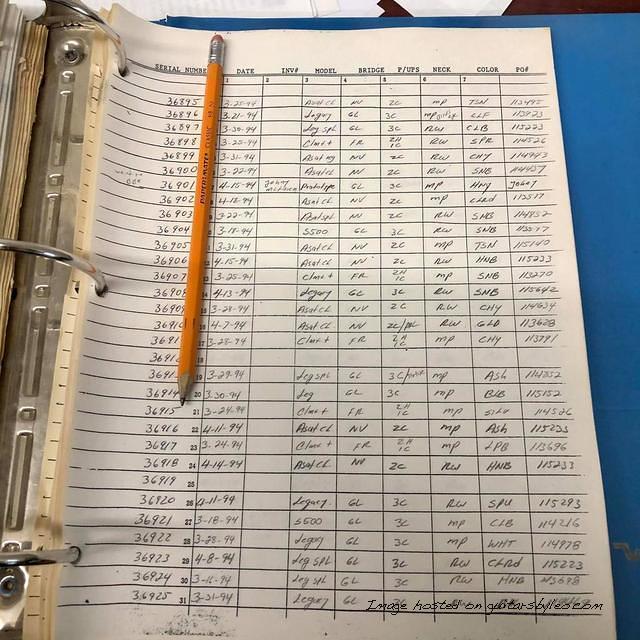 SERIAL NUMB DATE INV# MODEL BRIDGE P/UPS NECK COLOR PO#
1 2 3 4 5 6 7
36895 3-25-94 Asat CL NV 2C mp TSN
36896 3-21-94 Legacy GL 3C mp CLF
36897 3-30-94 Leg spl GL 3C RW CLB 115223
36898 3-25-94 Clmt + FR 2H 1C RW SPR 114526
36899 3-31-94 Asat NV 2C RW CHY 114943
36900 3-22-94 Asat CL NV 2C RW SNB
36901 4-15-94 Johny Prototype GL 3C mp Hny Johny
36902 4-12-94 Asat CL NV 2C mp CLRd
36903 3-22-94 Asat spl NV 2C RW SNB 114852
36904 3-18-94 S500 GL 3C RW SNB
36905 3-31-94 Asat CL NV 2C mp TSN 115140
36906 4-15-94 Asat CL NV 2C RW HNB 115233
36907 3-25-94 Clmt + FR 2H 1C mp SNB 113270
36908 14 4-13-94 Legacy GL 3C RW SNB 115642
36909 3-28-94 Asat CL NV 2C RW CHY 114634
3691 16 4-7-94 Asat CL NV RW GLD 113628
3691 17 3-28-94 Clmt + FR 2H 1C mp CHY 113791
3691 18
3691 3-29-94 Leg spl GL 3C mp Ash 114852
36914 20 3-30-94 Leg GL 3C mp BLB 115152
36915 21 3-24-94 Clmt + FR 2H 1C mp 114526
36916 22 4-11-94 Asat CL NV 2C mp Ash 115233
36917 23 3-24-94 Clmt + FR 2H 1C mp LPB 113696
36918 24 4-14-94 Asat CL NV 2C RW HNB 115233
36919 25
36920 26 4-11-94 Legacy GL 3C RW SPU 115293
36921 27 3-18-94 S500 GL 3C mp CLB 114216
36922 28 3-28-94 Legacy GL 3C mp WHT 114978
36923 29 4-8-94 Leg spl GL 3C RW CLRd 115223
36924 30 Leg spl GL 3C RW HNB
36925 31 3-31-94 Legacy GL
PAPERMATE CLASSIC
Image hosted on guitarsbyleo.com